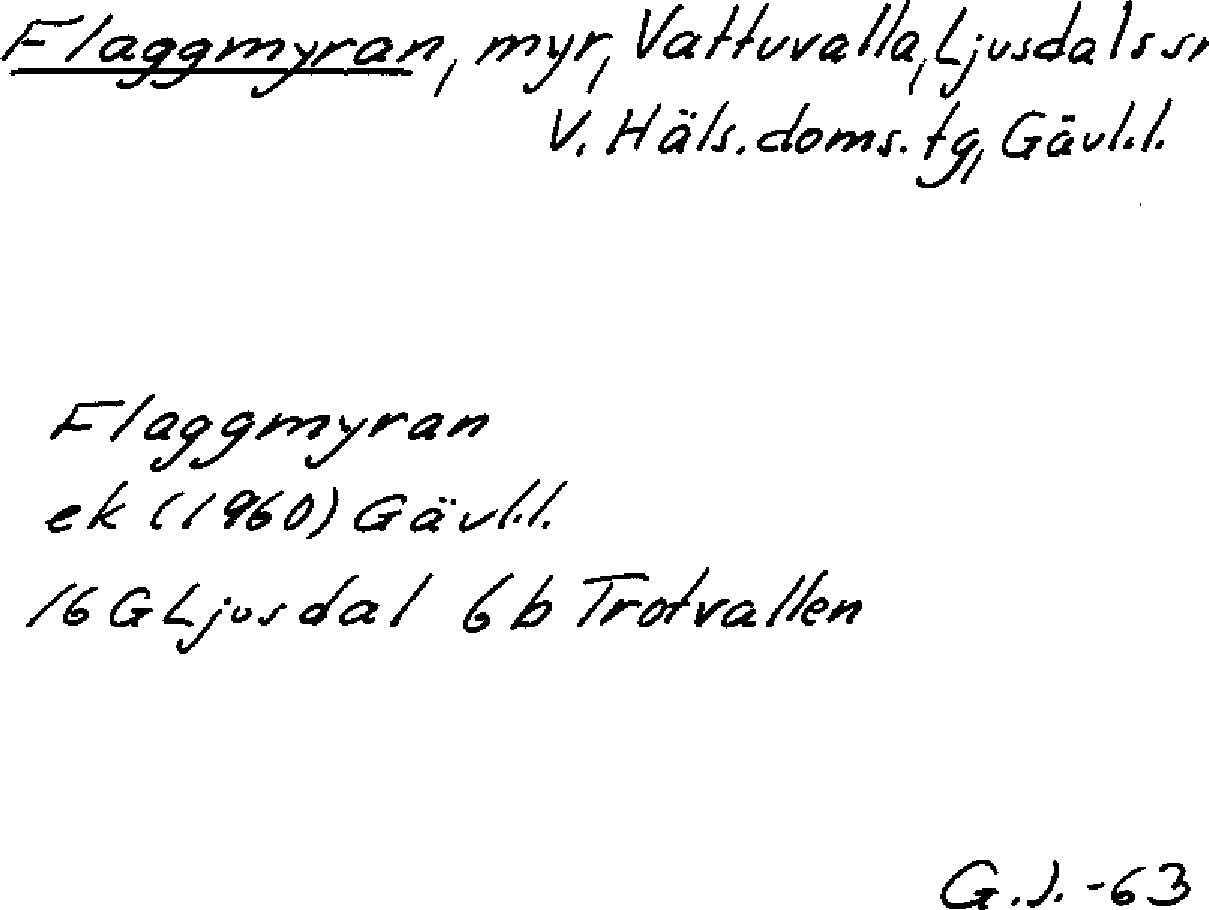 Flaggmyran, myr, Vattuvalla, Ljusdals sn
V. Häls. doms. tg, Gävl.l.
Flaggmyran
ek (1960) Gävl.l.
16 G Ljusdal 6 b Trotvallen
G.J. -63